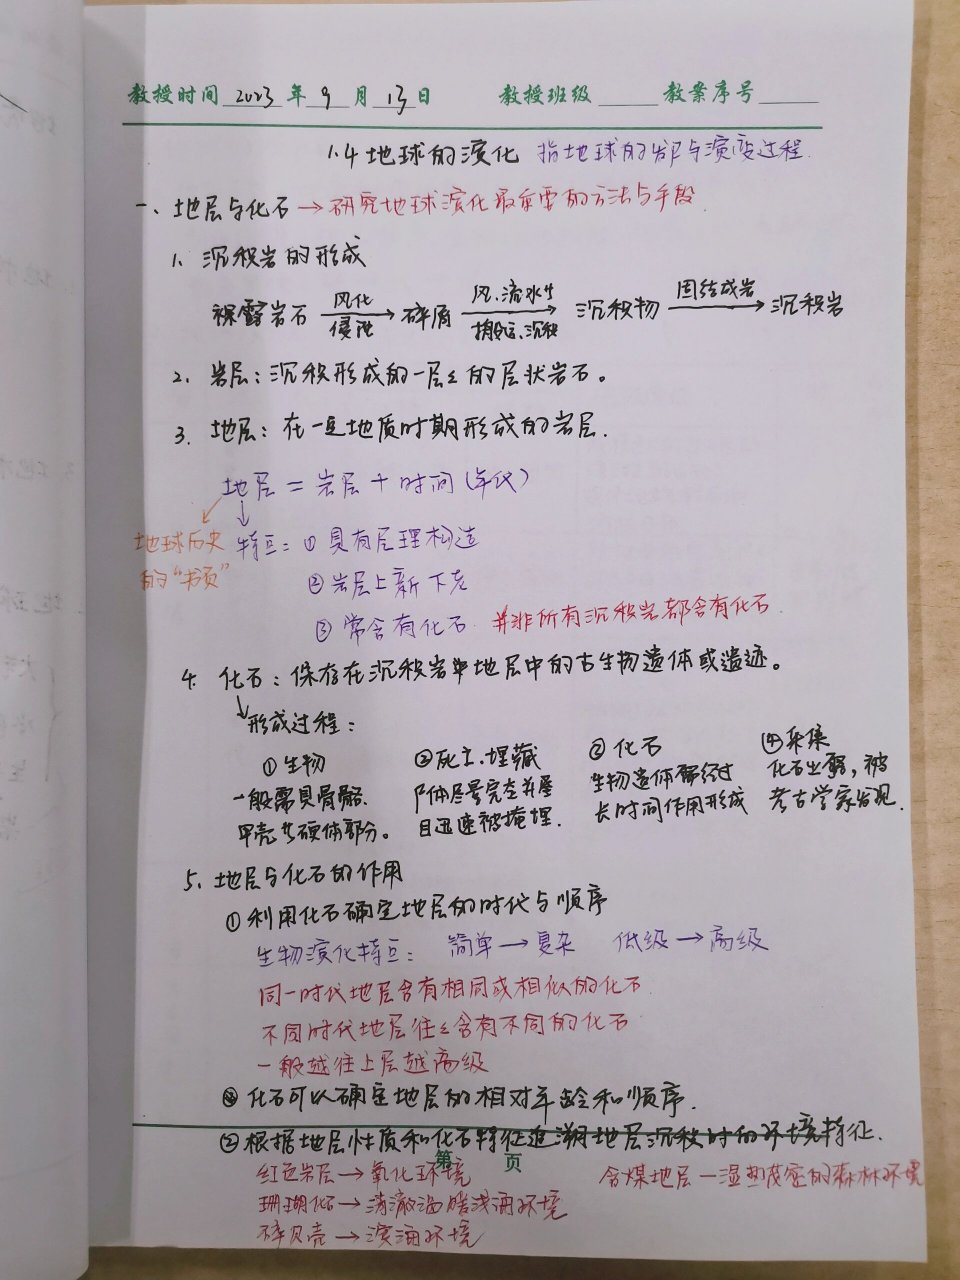 教授时间 2023 年 9 月 13 日 教授班级 教案序号
1.4 地球的演化 指地球的 与演变过程.
一、地层与化石→研究地球演化最重要的方法与手段.
1. 沉积岩的形成
风化 风、流水 固结成岩
裸露岩石 → 碎屑 → 沉积物 → 沉积岩
侵蚀 搬运、沉积
2. 岩层:沉积形成的一层々的层状岩石。
3. 地层:在一定地质时期形成的岩层.
地层 = 岩层 + 时间(年代)
地球历史的“书页”
特点:① 具有层理构造
② 岩层上新下老
③ 常含有化石. 并非所有沉积岩都含有化石.
4. 化石:保存在沉积岩中地层中的古生物遗体或遗迹。
形成过程:
① 生物
一般需具骨骼、
甲壳等硬体部分。
②死亡、埋藏
尸体尽量完整
且迅速被掩埋.
② 化石
生物遗体需经过
长时间作用形成
④采集
化石出露,被
考古学家发现.
5. 地层与化石的作用
① 利用化石确定地层的时代与顺序
生物演化特点: 简单→复杂 低级→高级
同一时代地层含有相同或相似的化石.
不同时代地层往々含有不同的化石
一般越往上层越高级
化石可以确定地层的相对年龄和顺序.
②根据地层性质和化石特征追溯地层沉积时的环境特征.
第 页
红色岩层→氧化环境 含煤地层—湿热茂密的森林环境
珊瑚化石→清澈温暖浅海环境
碎贝壳→滨海环境